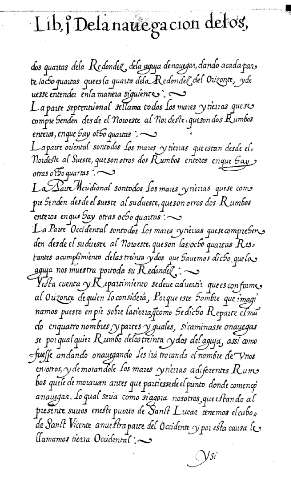 Lib, j Dela nauegacion delos,
dos quartas dela Redondez, dela aguja denauegar, dando acada par
te ocho quartas queesla quarta dela Redondez del Orizonte, y de
ueste entender en la manera siguiente:
La parte septentrional se llama todos los mares y tierras que se
comprehenden desde el Noroeste al Nordeste, que son dos Rumbos
enteros, en que hay ocho quartas:
La parte oriental son todos los mares y tierras que estan desde el
Nordeste al Sueste, que son otros dos Rumbos enteros en que hay
otras ocho quartas:
La Parte Meridional son todos los mares y tierras que se com
prehenden desde el sueste al sudueste, que son otros dos Rumbos
enteros en que hay otras ocho quartas:
La Parte Occidental son todos los mares y tierras que se comprehen
den desde el sudueste al Noroeste, que son las ocho quartas Res
tantes a cumplimiento delas treinta y dos que hauemos dicho que la
aguja nos muestra por toda su Redondez:
Y esta cuenta y Repartimiento se deue aduertir que es conforme
al Orizonte de quien lo considera, Porque este hombre que imagi
namos puesto en pie sobre la tierra, como he dicho Reparte el mu
do en quatro nombres y partes yguales, si caminasse o nauegas
se por qualquier Rumbo delas treinta y dos del aguja, assi como
fuesse andando o nauegando les iria trocando el nombre de vnos
en otros, y demorandole los mares y tierras a diferentes Rum
bos que le demorauan antes que partiesse del punto donde començo
a nauegar. lo qual seria como si agora nosotros, que estando al
presente surtos en este puerto de Sanct Lucar tenemos el cabo
de Sanct Vicente a nuestra parte del Occidente y por esta causa le
llamamos tierra Occidental:
Y si